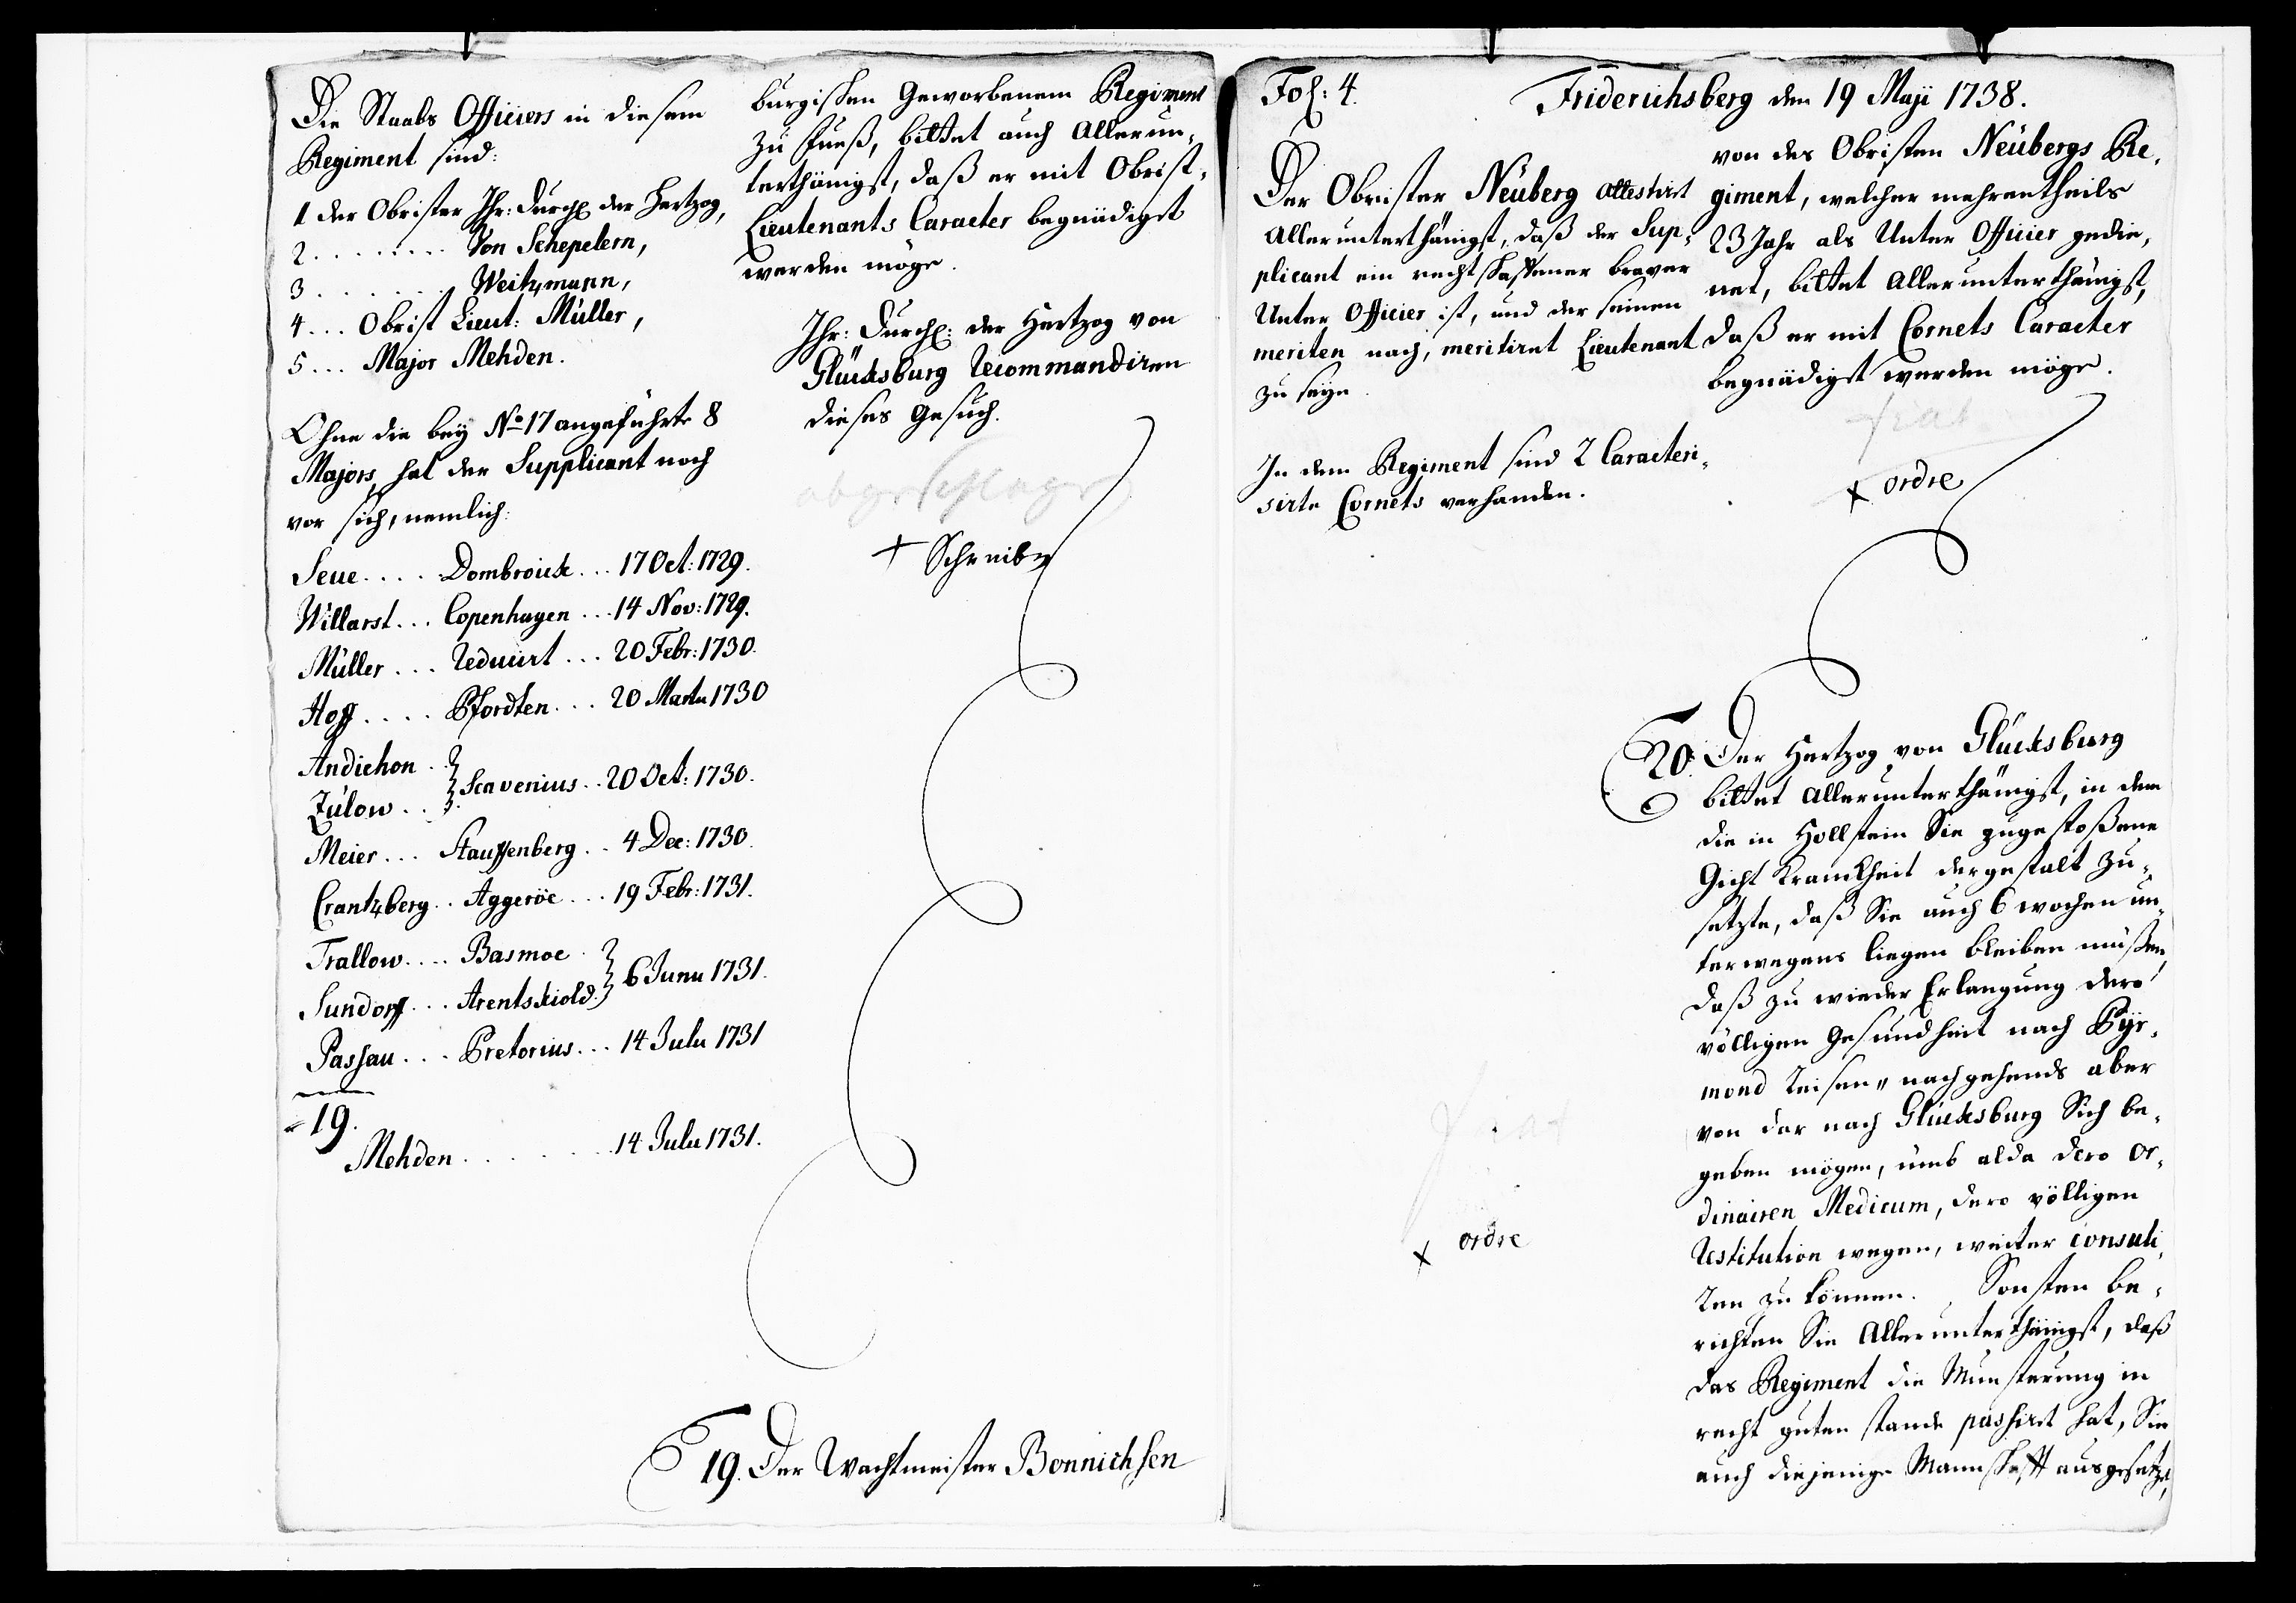 Die Staabs Officiers in diesem
Regiment sind:
1 der Obrister Ihr: Durchl: der Hertzog,
2 . . . . . . . . Von Schepelern,
3 . . . . . . . . Weitzmann,
4 . . . Obrist Lieut: Müller,
5 . . . Major Mehden.
Ohne die beÿ No 17 angeführte 8
Majors, hat der Supplicant noch
vor sich, nemlich:
Seue . . . . Dombroick . . . 17 Oct: 1729.
Willarst . . . Copenhagen . . . 14 Nov: 1729.
Müller . . . reducirt . . . 20 Febr: 1730.
Hoff . . . . Pfordten . . . 20 Martii 1730
Andichon . .
Scavenius . . 20 Oct: 1730.
Zülow . . .
Meier . . . Stauffenberg . . 4 Dec: 1730.
Crantzberg . . Aggeröe . . . 19 Febr: 1731.
Trallow . . . . Basmoe
6 Junii 1731.
Sundorff . . . Arentskiold
Passau . . . Pretorius . . . 14 Julii 1731
19.
Mehden . . . . . . . . 14 Julii 1731.
burgischen Geworbenem Regiment
zu Fueß, bittet auch Allerun-
terthänigst, daß er mit Obrist-
Lieutenants Caracter begnädiget
werden möge.
Ihr: Durchl: der Hertzog von
Glücksburg recommandiren
dieses Gesuch.
abgeschlagen
+ Schreiben
19. Der Wachtmeister Bonnichsen
Fol: 4.
Friderichsberg den 19 Maji 1738.
Der Obrister Neüberg attestirt
Allerunterthänigst, daß der Sup-
plicant ein rechtschaffener braver
Unter Officier ist, und der seinen
meriten nach, meritiret Lieutenant
zu seÿn.
In dem Regiment sind 2 Caracteri-
sirte Cornets verhanden.
von des Obristen Neübergs Re-
giment, welcher mehrentheils
23 Jahr als Unter Officier gedie-
net, bittet Allerunterthänigst,
daß er mit Cornets Caracter
begnädiget werden möge.
fiat
x ordre
20. Der Hertzog von Glücksburg
bittet Allerunterthänigst, in dem
die in Hollstein Sie zugestoßene
Gicht Kranckheit dergestalt zu-
setzte, daß Sie auch 6 wochen un-
terwegens liegen bleiben müßen,
daß zu wieder Erlangung dero
völligen Gesundheit nach Pÿr-
mond reisen, nachgehends aber
von dar nach Glücksburg Sich be-
geben mögen, umb alda dero or-
dinairen Medicum, dero völligen
restitution wegen, weiter consuli-
ren zu können. Sonsten be-
richten Sie Allerunterthänigst, daß
das Regiment die Munsterung in
recht guten stande passirt hat, Sie
auch diejenige Mannschafft ausgesetzt,
fiat
x ordre